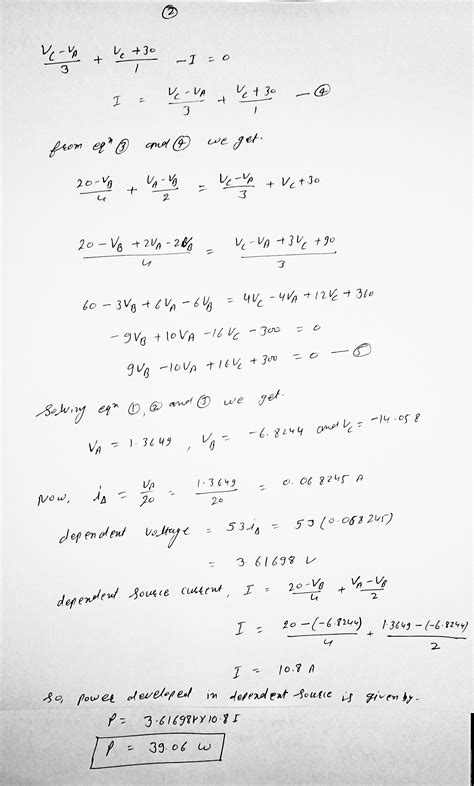 ②
(V_C - V_A)/3 + (V_C + 30)/1 - I = 0
I = (V_C - V_A)/3 + (V_C + 30)/1 — ④
from eqⁿ ③ and ④ we get.
(20 - V_B)/4 + (V_A - V_B)/2 = (V_C - V_A)/3 + V_C + 30
(20 - V_B + 2V_A - 2V_B)/4 = (V_C - V_A + 3V_C + 90)/3
60 - 3V_B + 6V_A - 6V_B = 4V_C - 4V_A + 12V_C + 360
-9V_B + 10V_A - 16V_C - 300 = 0
9V_B - 10V_A + 16V_C + 300 = 0 — ⑤
Solving eqⁿ ①, ② and ⑤ we get.
V_A = 1.3649, V_B = -6.8244 and V_C = -14.058
Now, i_Δ = V_A/20 = 1.3649/20 = 0.068245 A
dependent voltage = 53i_Δ = 53(0.068245)
= 3.61698 V
dependent source current, I = (20 - V_B)/4 + (V_A - V_B)/2
I = (20 - (-6.8244))/4 + (1.3649 - (-6.8244))/2
I = 10.8 A
So, power developed in dependent source is given by.
P = 3.61698V X 10.8 I
P = 39.06 W